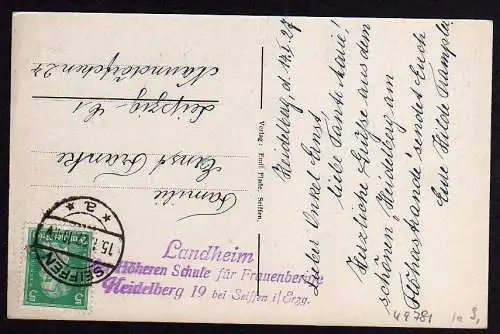 Heidelberg, d. 13.7.27
Lieber Onkel Ernst!
liebe Tante Marie!
Herzliche Grüße aus dem
schönen, Heidelberg am
Flöhastrande sendet Euch
Eure Hilde
Verlag: Emil Seiffen.
Familie
Ernst Franke
Leipzig-C1
27
SEIFFEN
15.7.
* a *
5
5
Landheim
Höheren Schule für Frauenberufe
Heidelberg 19 bei Seiffen i/Erzg.
49781